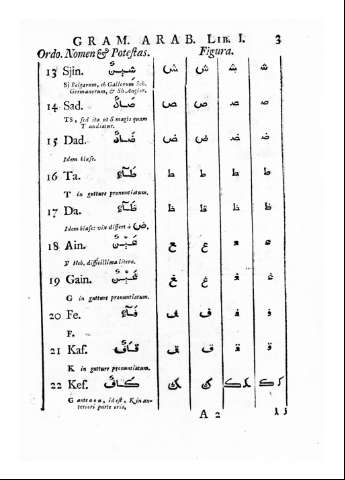 GRAM. ARAB. LIB. I. 3
Ordo. Nomen & Potestas. Figura.
13 Sjin. شِينٌ ش ش ش ش
Sj Belgarum, ch Gallorum Sch,
Germanorum, & Sh Anglor.
14 Sad. صَادٌ ص ص ص ص
TS, sed ita ut S magis quam
T audiatur.
15 Dad. ضَادٌ ض ض ض ض
Idem blæse.
16 Ta. طَآءٌ ط ط ط ط
T in gutture pronuntiatum.
17 Da. ظَآءٌ ظ ظ ظ ظ
Idem blæse: vix differt à ض.
18 Ain. عَيْنٌ ع ع ع ع
Heb. difficillima litera.
19 Gain. غَيْنٌ غ غ غ غ
G in gutture pronuntiatum.
20 Fe. فَآءٌ ف ف ف ف
F.
21 Kaf. قَافٌ ق ق ق ق
K in gutture pronuntiatum.
22 Kef. كَافٌ ك ك ك ك
G id est, K in an-
teriori parte oris.
A 2